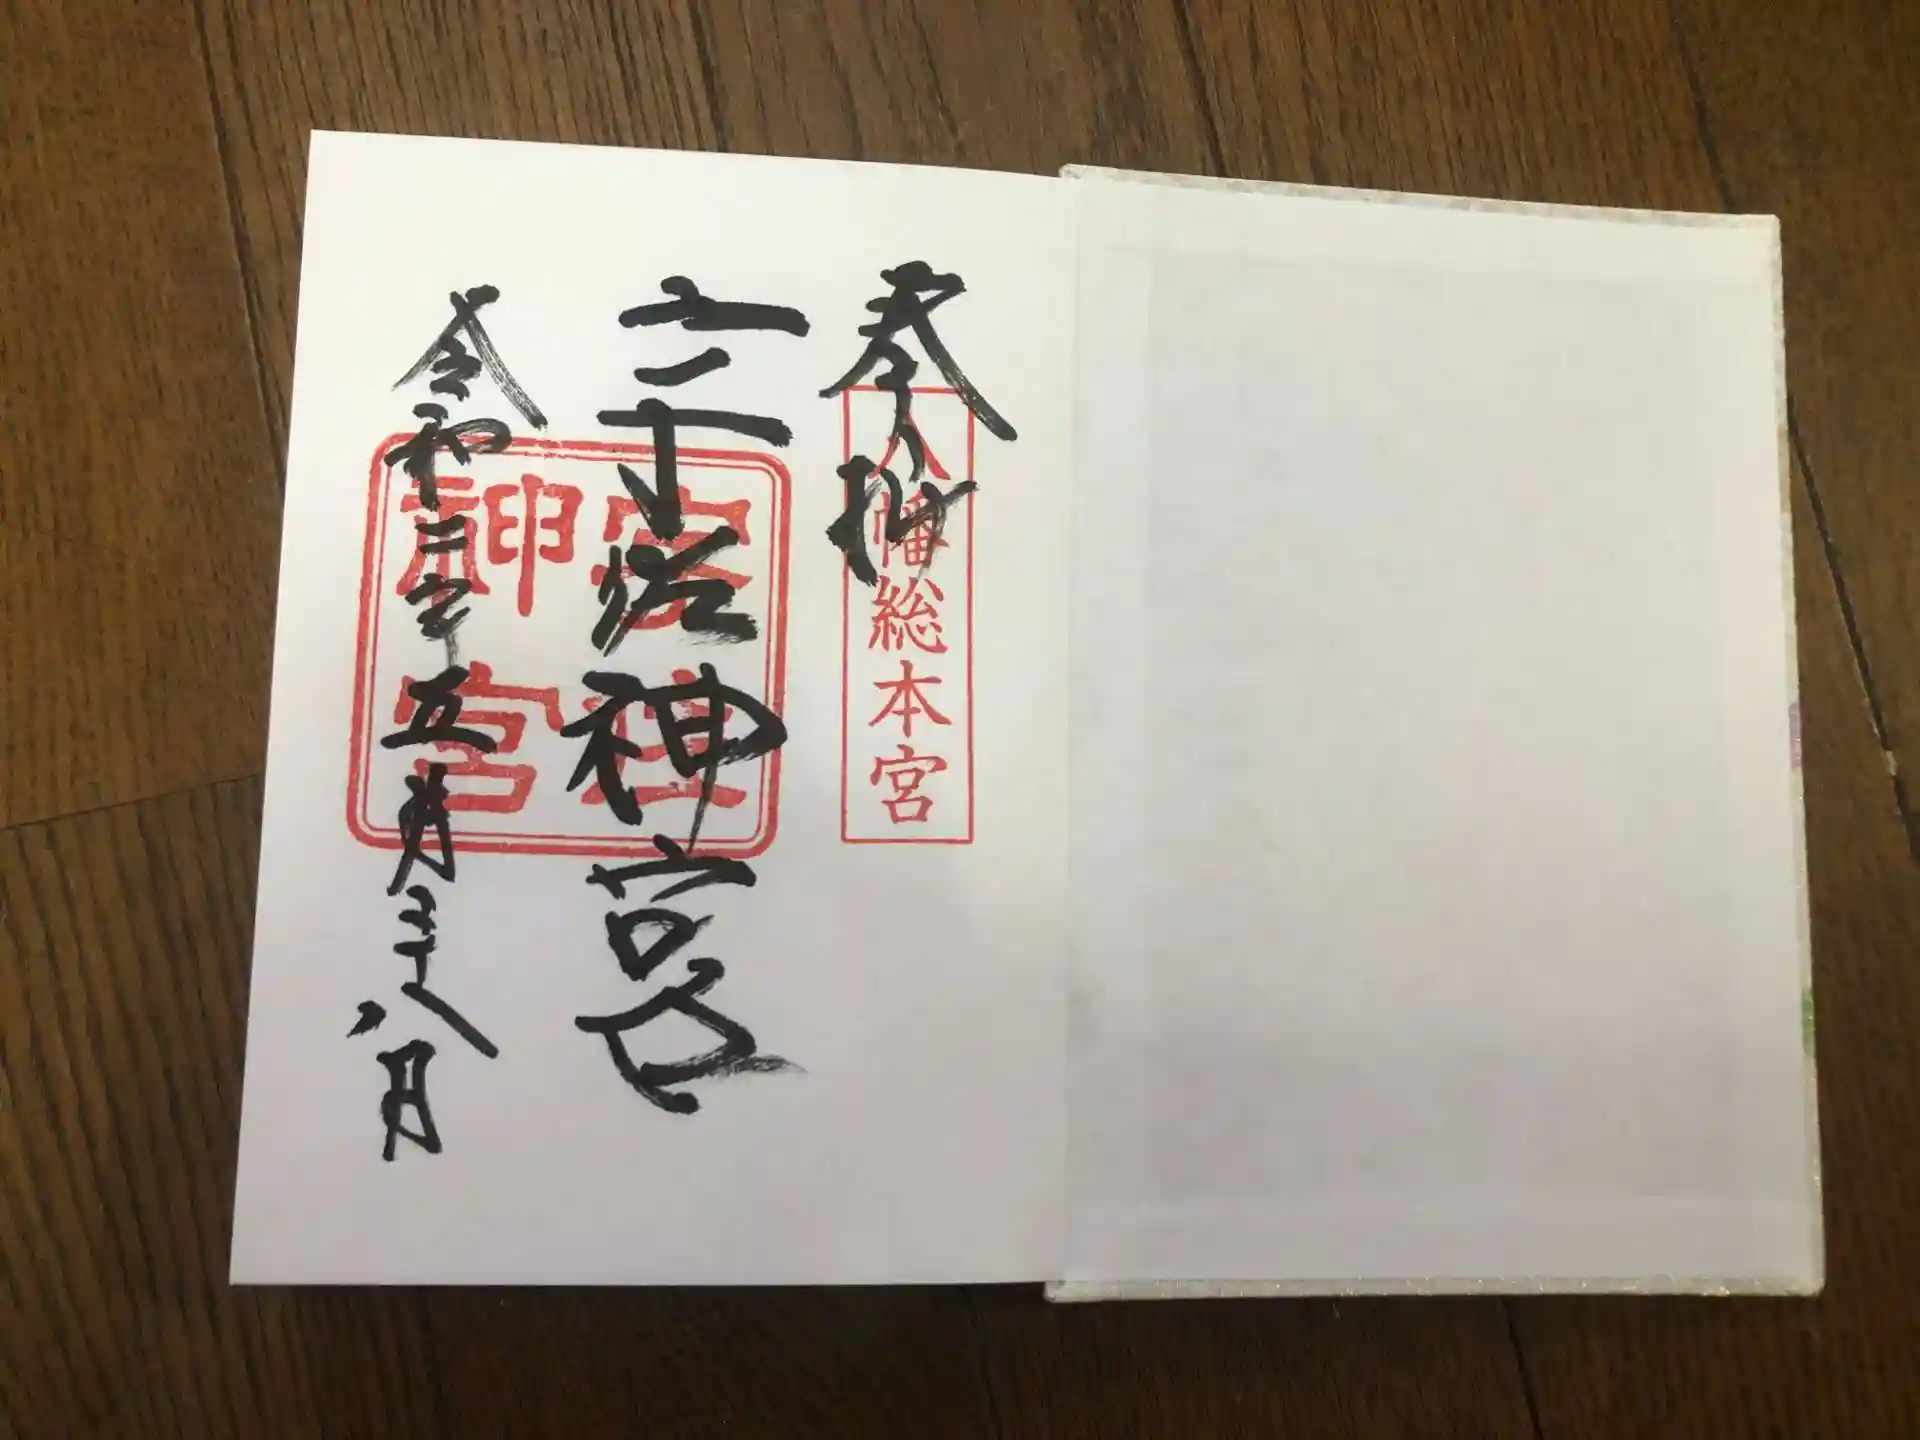 奉拝
八幡総本宮
宇佐神宮
宇佐
神宮
令和二年五月二十八日